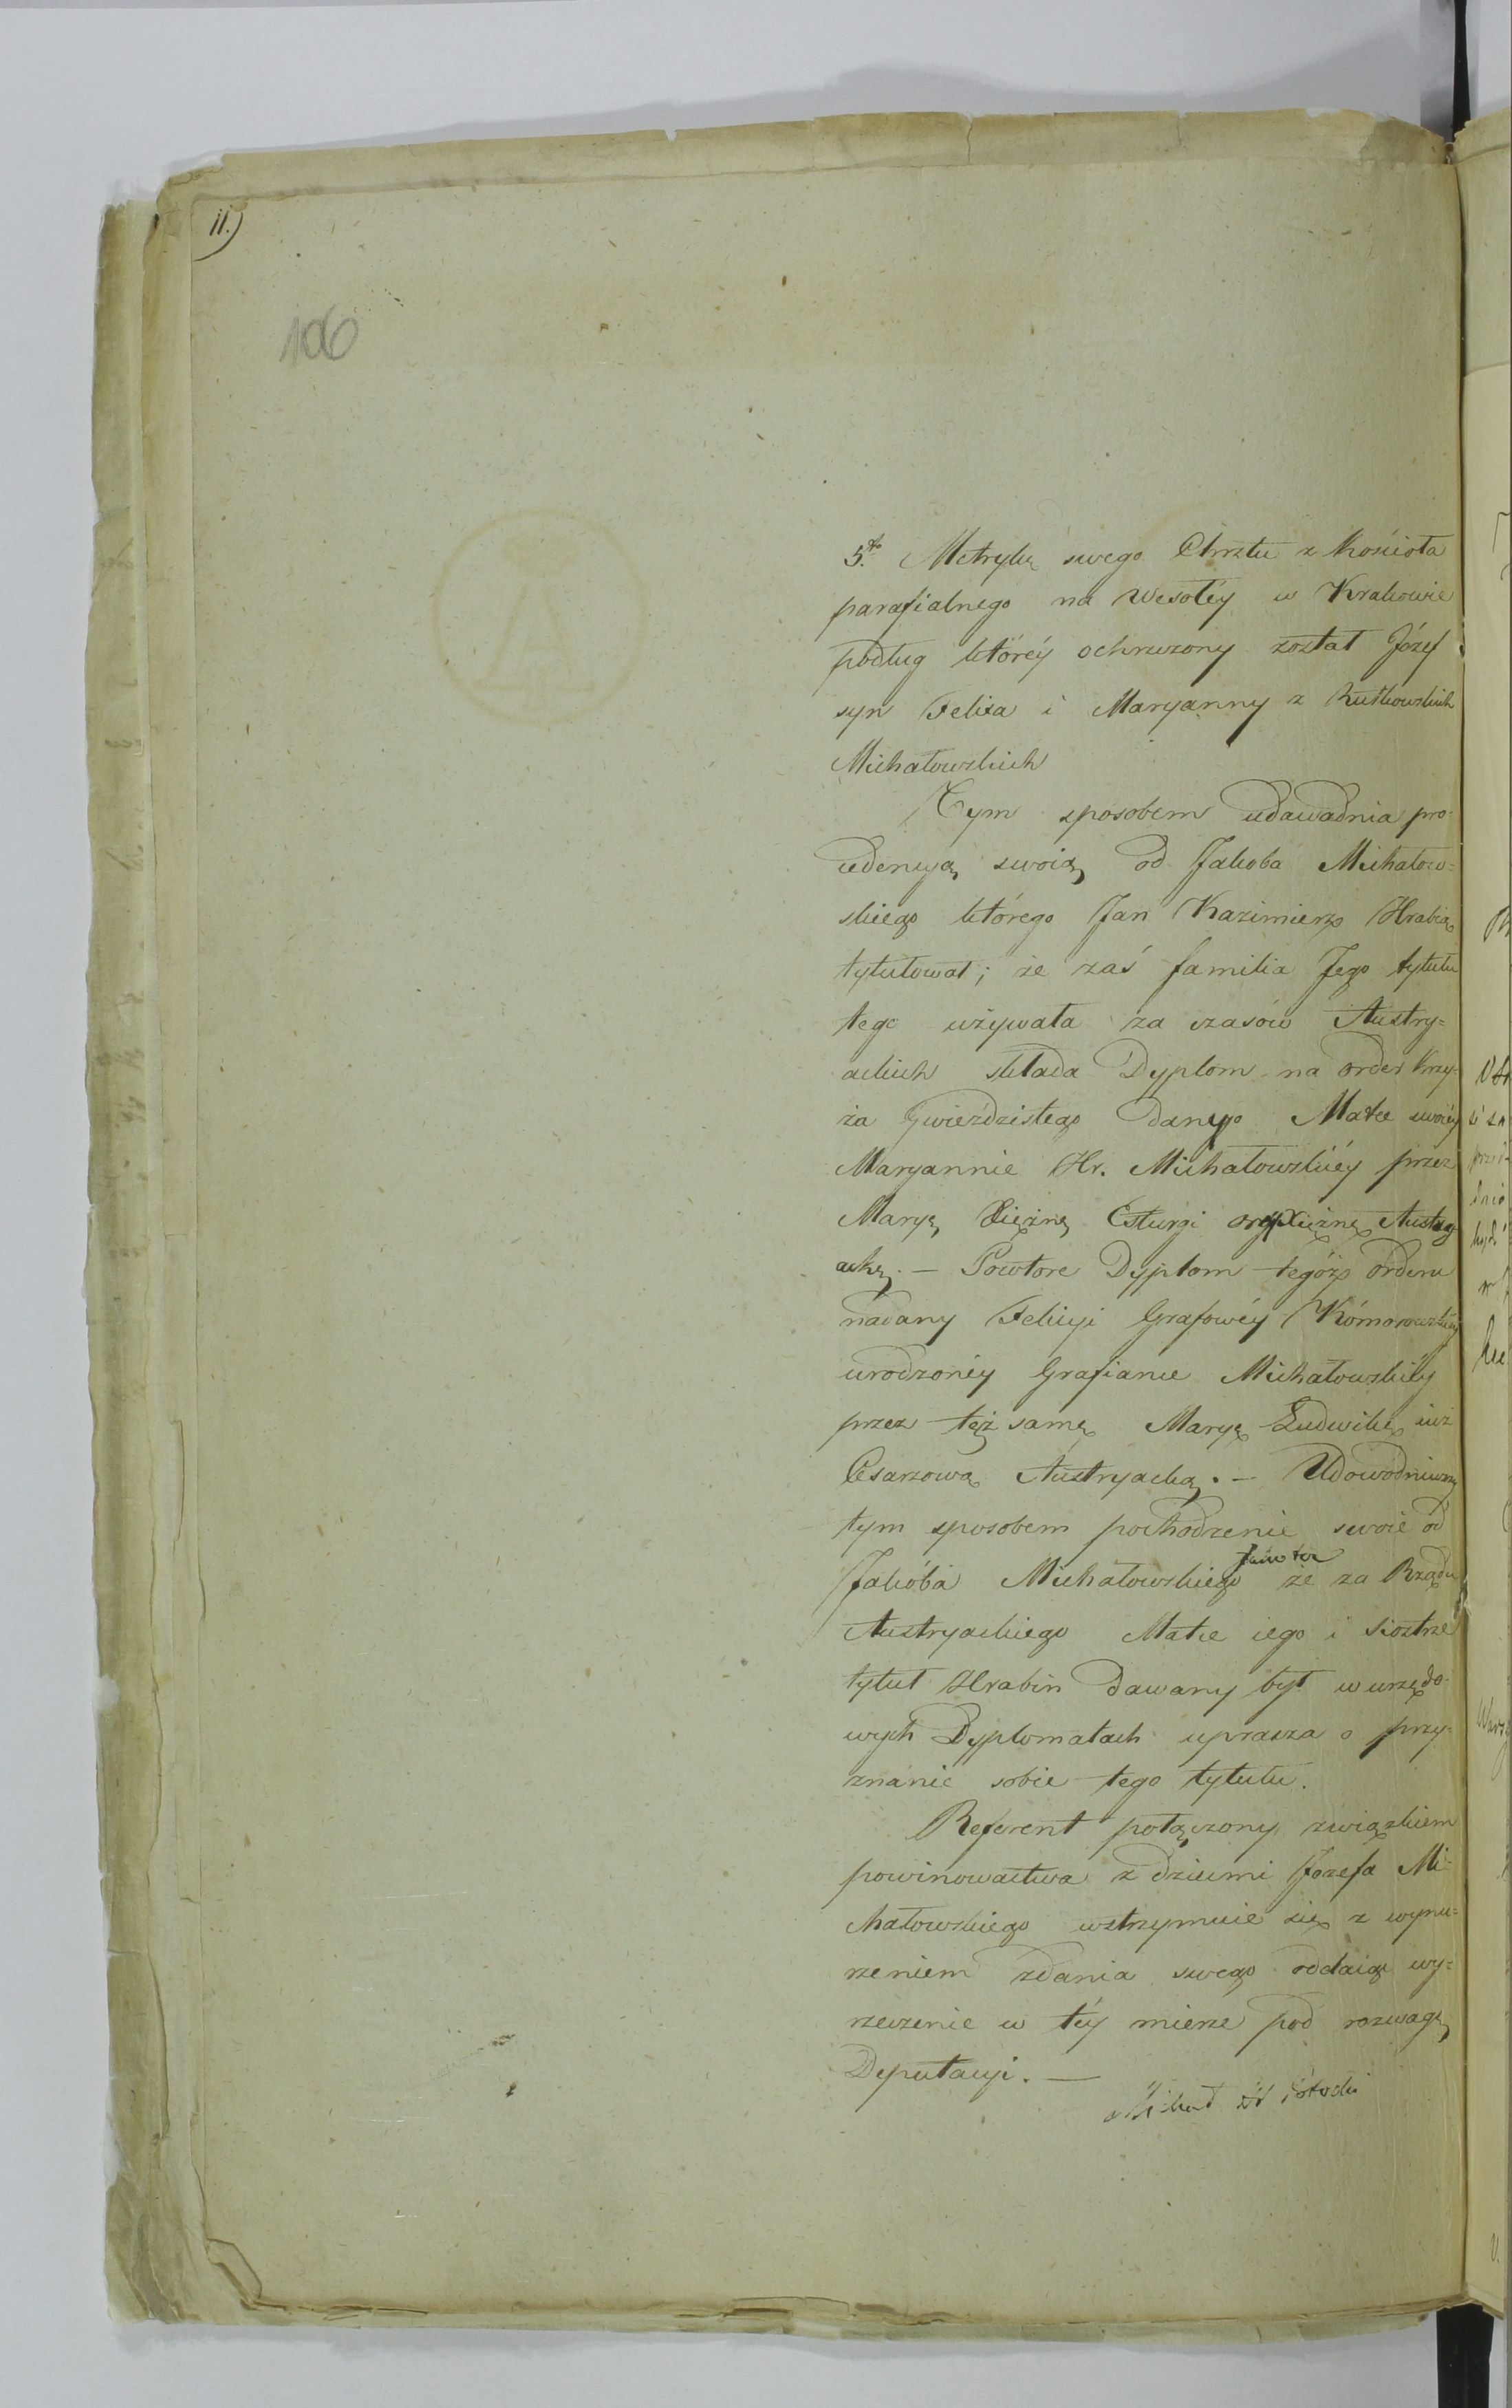 11.)
106
5.to Metrykę swego Chrztu z Kościoła
parafialnego na Wesołéy w Krakowie
podług któréy ochrzczony został Józef
syn Felixa i Maryanny z Rutkowskich
Michałowskich
Tym sposobem udawadnia pro-
cedencyą swoią od Jakoba Michałow=
skiego którego Jan Kazimierz Hrabią
tytułował; że zaś familia Jego tytułu
tego używała za czasów Austry=
ackich składa Dyplom na order Krzy-
ża Gwieździstego danego Matce swoiéy
Maryannie Hr. Michałowskiéy przez
Maryę Xiężnę Esturgi arcyXiężnę Austry-
acką. — Powtore Dyplom tegóż orderu
nadany Felicyi Grafowéy Kómorowskiéy
urodzonéy Grafiance Michałowskiéy
przez też samę Maryę Ludwikę iuż
Cesarzową Austryacką. — Udowodniwszy
tym sposobem pochodzenie swoie od
Jakóba Michałowskiego że za Rządu
Austryackiego Matce iego i siostrze
tytuł Hrabin dawany był w urzędo-
wych Dyplomatach uprasza o przy-
znanie sobie tego tytułu.
Referent połączony związkiem
powinowactwa z dziećmi Józefa Mi-
chałowskiego wstrzymuie się z wynu=
rzeniem zdania swego oddaiąc wy=
rzeczenie w téy mierze pod rozwagę
Deputacyi. —
Michał